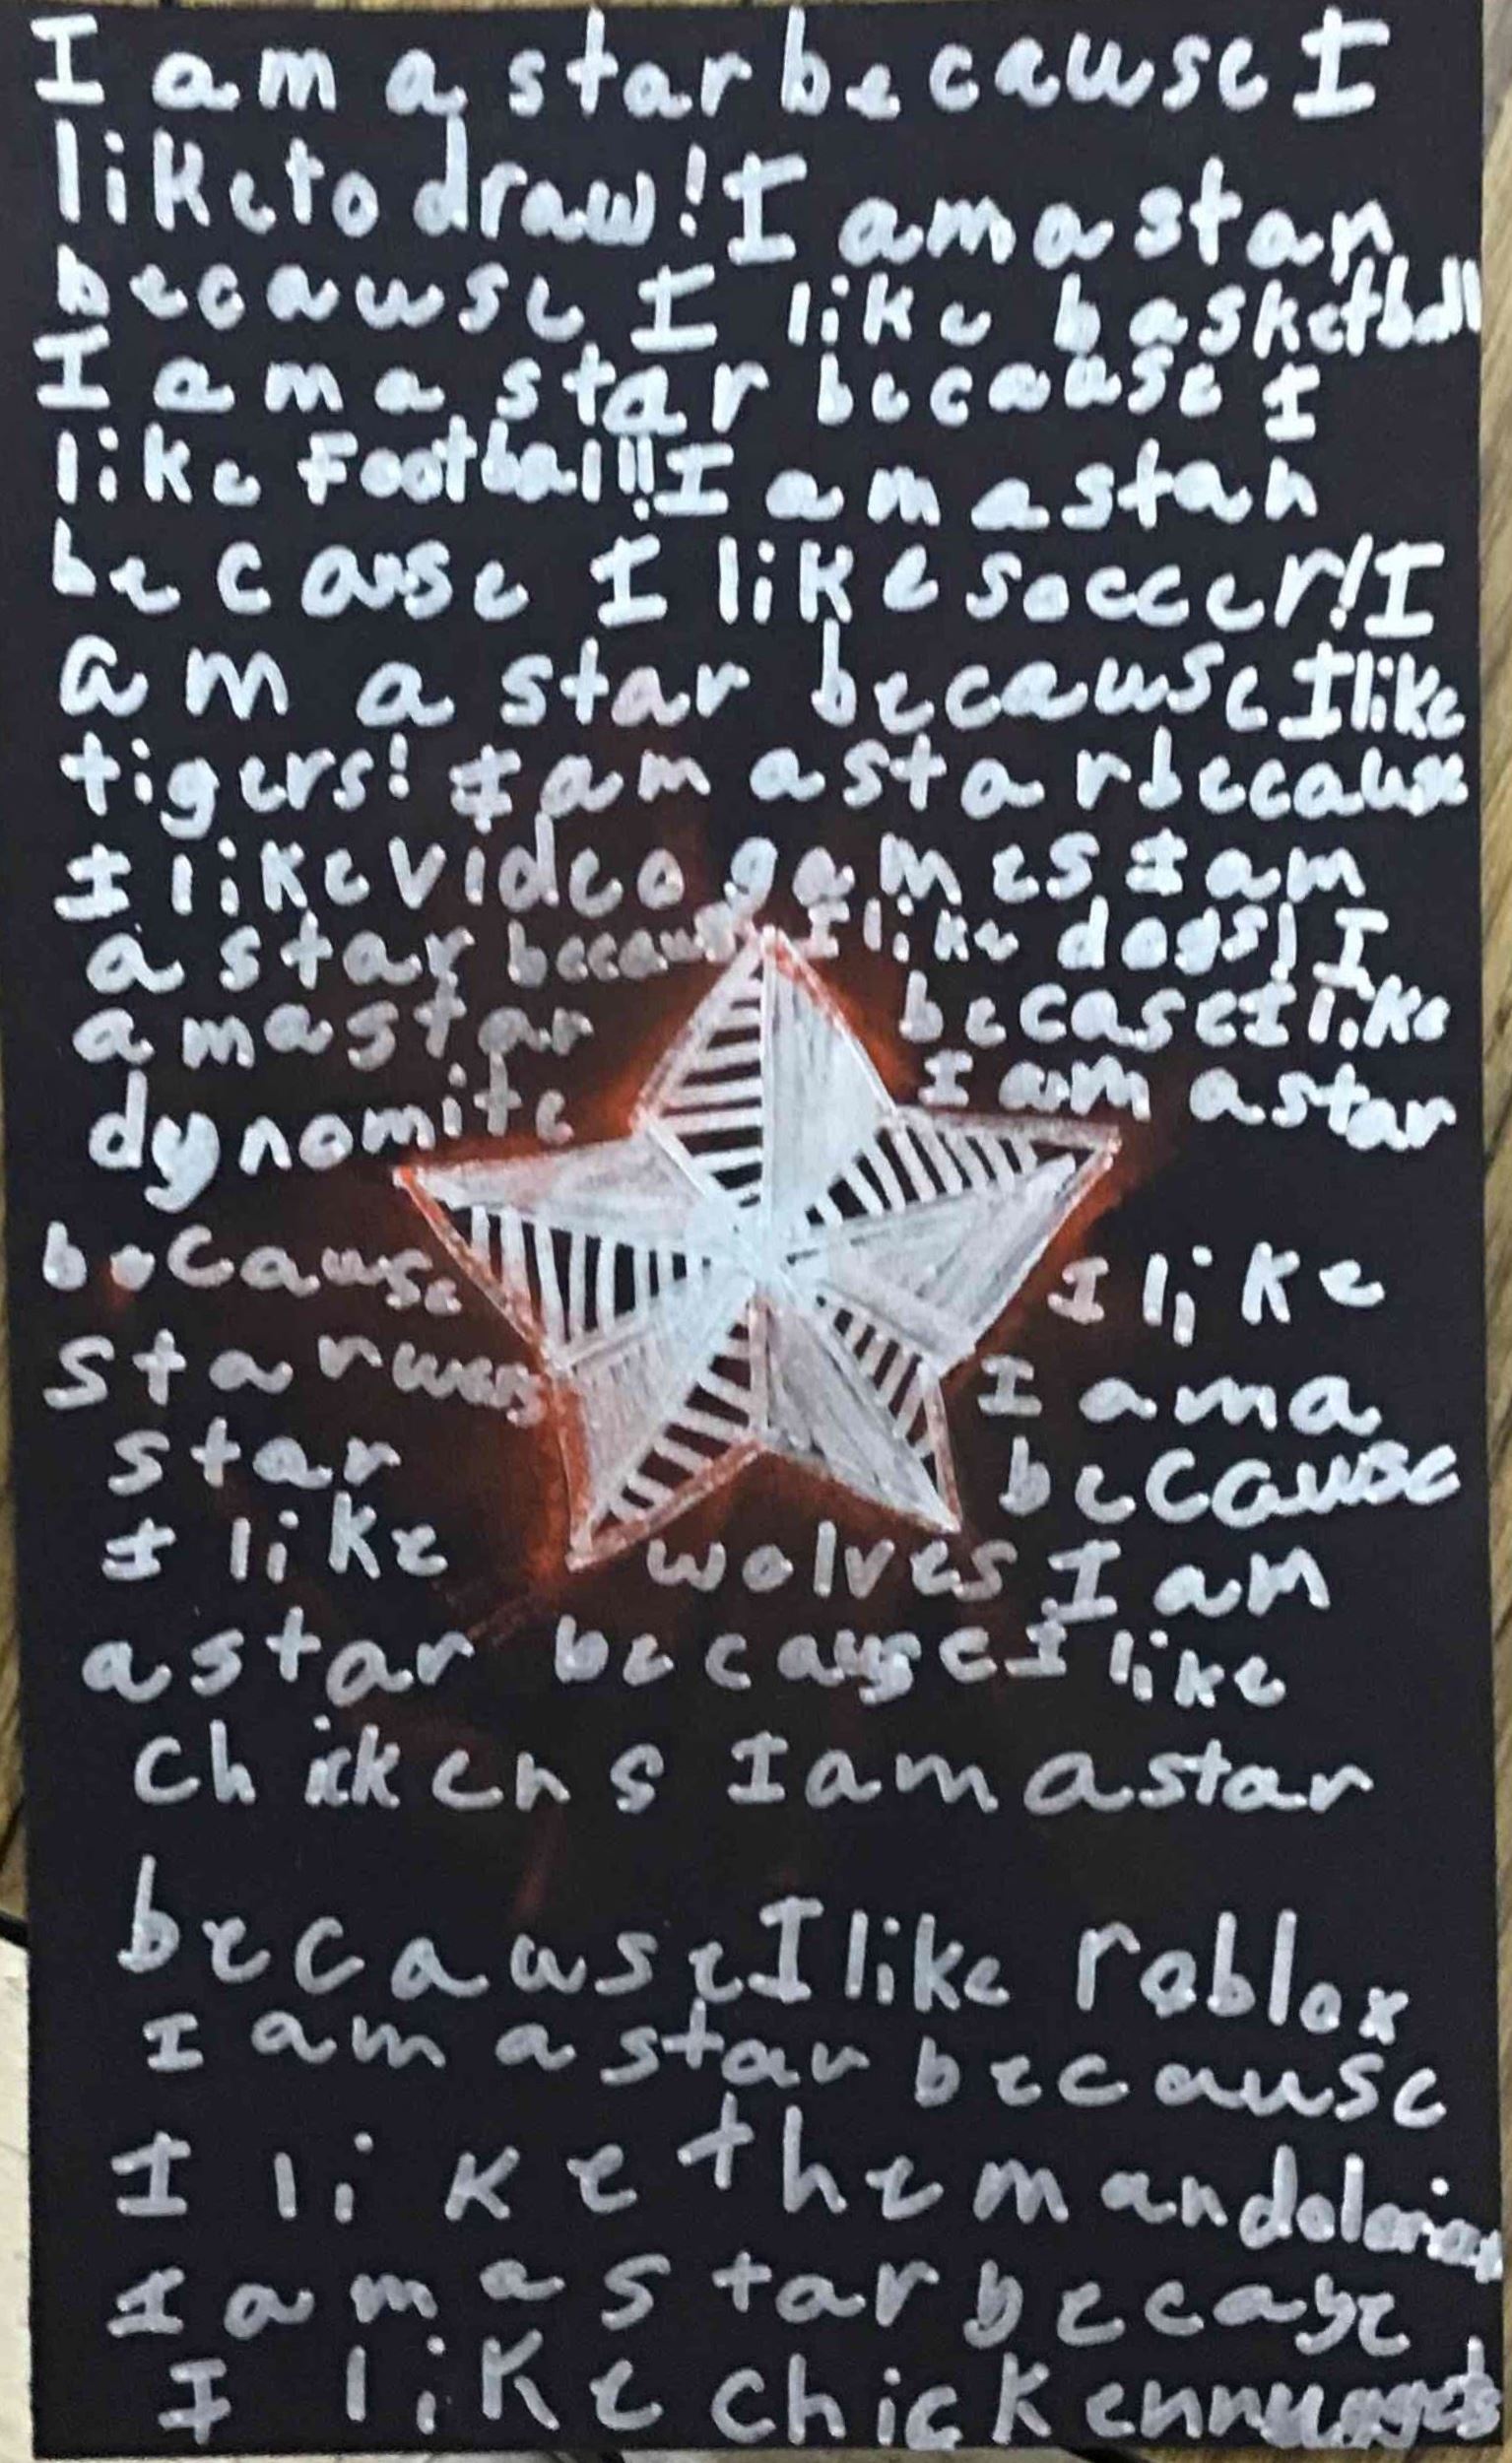 I am a star because I
like to draw! I am a star
because I like basketball
I am a star because I
like Football!! I am a star
because I like soccer! I
am a star because I like
tigers! I am a star because
I like video games I am
a star because I like dogs! I
am a star becase I like
dynomite I am a star
because I like
starwars I am a
star because
I like wolves I am
a star because I like
chickens I am a star
because I like roblox
I am a star because
I like the mandalorian
I am a star becase
I like chicken nuggets